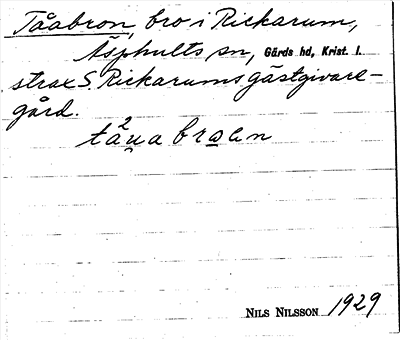 Tåabron, bro i Rickarum,
Äsphults sn, Gärds hd, Krist. l.
strax S. Rickarums gästgivare-
gård.
NILS NILSSON 1929